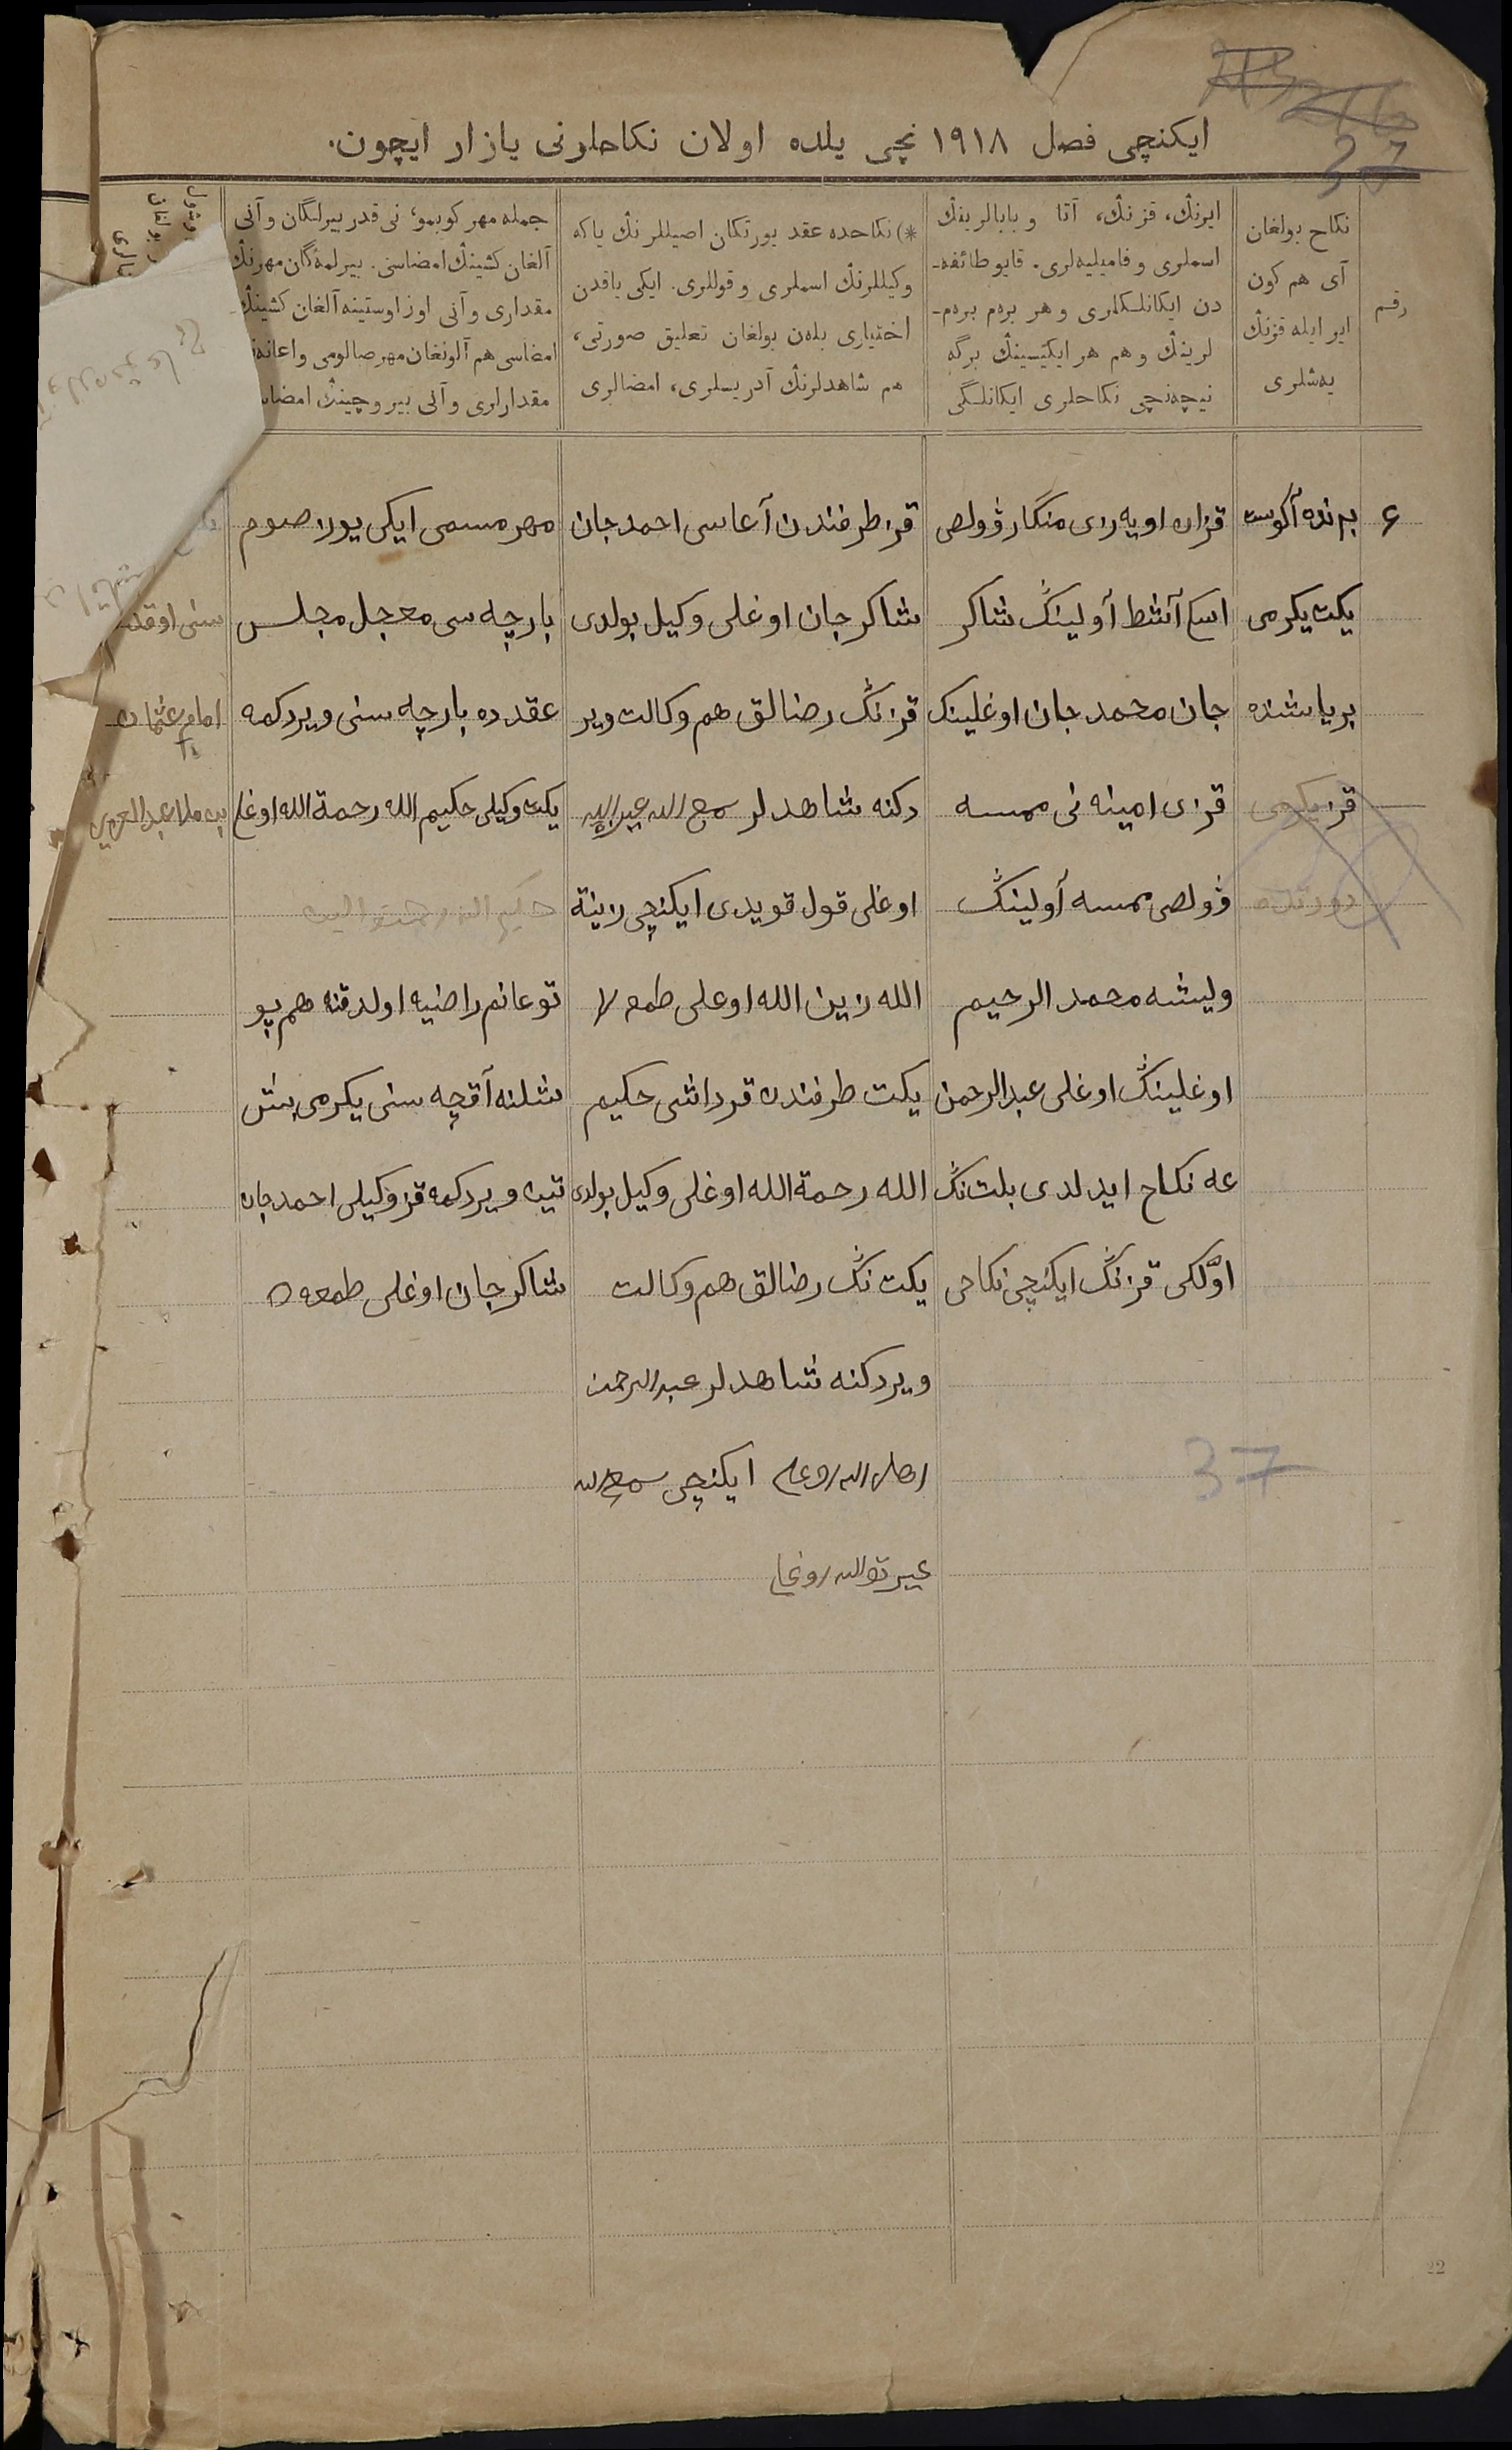 37
ایکنچی فصل ۱۹۱۸ نچی یلده اولان نکاحلرنی یازار ایچون.
رقم
نکاح بولغان
آی هم کون
ایر ایله قزنڭ
یەشلری
ایرنڭ، قزنڭ، آتا و بابالرینڭ
اسملری و فامیلیەلری. قایو طائفە-
دن ایکانلکلری و هر برەم برەم-
لرینڭ و هم هر ایکیسینڭ برگه
نیچەنچی نکاحلری ایکانلگی
*) نکاحده عقد یورتکان اصیللرنڭ یاکه
وکیللرنڭ اسملری و قوللری. ایکی یاقدن
اختیاری بلەن بولغان تعلیق صورتی،
هم شاهدلرنڭ آدریسلری، امضالری
جمله مهر کوبمو، نی قدر بیرلگان و آنی
آلغان کشینڭ امضاسی. بیرلمەگان مهرنڭ
مقداری و آنی اوز اوستینه آلغان کشینڭ
امضاسی هم آلونغان مهر صالومی و اعانه
مقدارلری و آنی بیروچینڭ امضا
۶
برنده آگوست
یکت یکرمی
بر یاشنده
قز یکرمی
دورتده
قزان اویەزی منگار ڤولص
اسکی آشط آولینڭ شاکر
جان محمد جان اوغلینڭ
قزی امینه نی ممسه
ڤولص ممسه آولینڭ
ولیشه محمد الرحیم
اوغلینڭ اوغلی عبدالرحمن
غه نکاح ایدلدی یکت نڭ
اوّلکی قزنڭ ایکنچی نکاحی
قز طرفندن آغاسی احمدجان
شاکرجان اوغلی وکیل بولدی
قزنڭ رضالق هم وکالت ویر
دکنه شاهدلر سمیع الله
اوغلی قول قویدی ایکنچی زینة
الله زین الله اوغلی طمغه
یکت طرفنده قرداشی حکیم
الله رحمة الله اوغلی وکیل بولدی
یکت نڭ رضالق هم وکالت
ویردکنه شاهدلر عبدالرحمن
ایکنچی سمیع الله
مهر مسمی ایکی یوز صوم
بارچه سی معجل مجلس
عقدده بارچه سنی ویردکمه
یکت وکیلی حکیم الله رحمة الله اوغلی
توغانم راضیه اولدقنه هم بو
شلنه آقچه سنی یکرمی بش
تین ویردکمه قز وکیلی احمدجان
شاکرجان اوغلی طمغه
سنی اوقد
امام عثمان
ملا عبدالعزیز
37
22